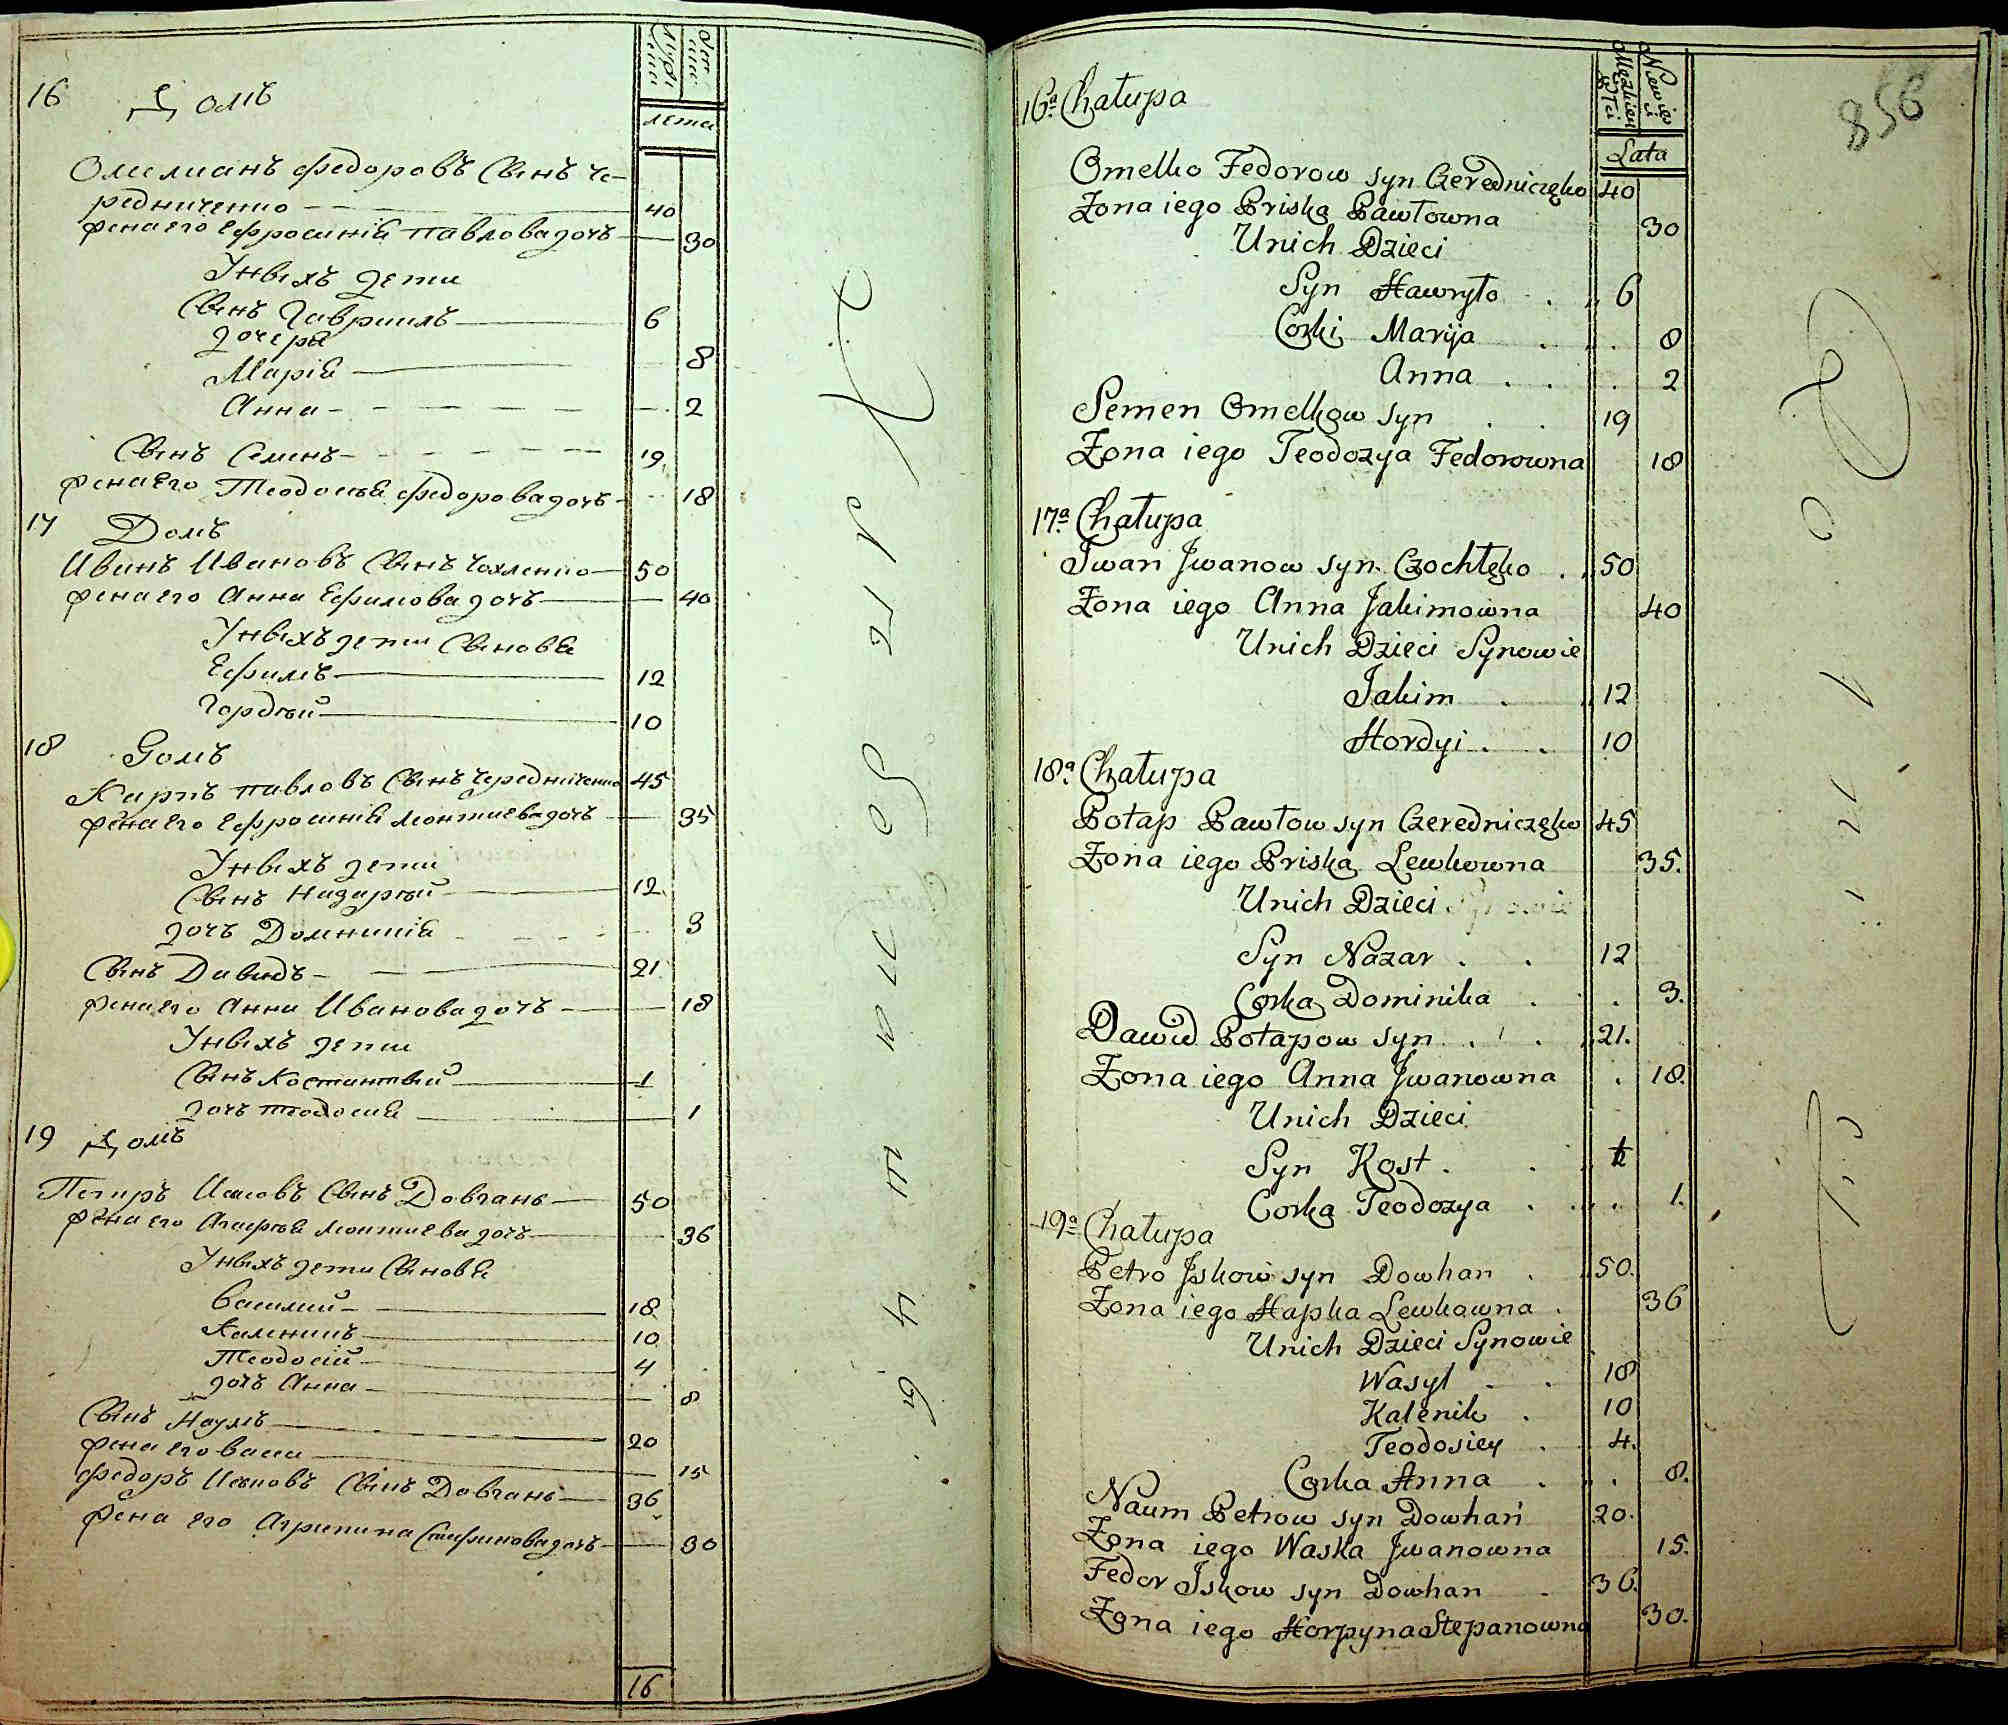 16 Домъ
лета
Омелианъ Федоровъ Сынъ Че-
редниченко 40
жена его Ефросиния Павлова дочъ 30
У ныхъ дети
Сынъ Гавриилъ 6
дочери
Мария 8
Анна 2
Сынъ Семенъ 19
жена Его Теодосия Федорова дочъ 18
17 Домъ
Иванъ Ивановъ Сынъ Чохленко 50
жена его Анна Ефимова дочъ 40
У ныхъ дети Сыновя
Ефимъ 12
Гордый 10
18 Домъ
Карпъ Павловъ Сынъ Чередниченко 45
жена Его Ефросиния дочъ 35
У ныхъ дети
Сынъ Назарый 12
дочъ Домникия 3
Сынъ Давидъ 21
жена Его Анна Иванова дочъ 18
У ныхъ дети
Сынъ Костантый 1
дочъ Теодосия 1
19 Домъ
Петръ Исковъ Сынъ Довгань 50
жена его Агафия дочъ 36
У ныхъ дети Сыновя
Василий 18
Калникъ 10
Теодосий 4
дочъ Анна 8
Сынъ Наумъ 20
жена Его Васса 15
Федоръ Исковъ Сынъ Довгань 36
жена его Агрипина Стефанова дочъ 30
16
856
Męzkiey płci
Lata
16a Chałupa
Omelko Fedorow syn Czeredniczęko 40
Żona iego Priska Pawłowna 30
Unich Dzieci
Syn Hawryło 6
Corki Marija 8
Anna 2
Semen Omelkow syn 19
Żona iego Teodozya Fedorowna 18
17a Chałupa
Jwan Jwanow syn Czochłęko 50
Żona iego Anna Jakimowna 40
Unich Dzieci Synowie
Jakim 12
Hordyi 10
18a Chałupa
Potap Pawłow syn Czeredniczęko 45
Żona iego Priska Lewkowna 35.
Unich Dzieci
Syn Nazar 12
Corka Dominika 3.
Dawid Potapow syn 21.
Żona iego Anna Jwanowna 18.
Unich Dzieci
Syn Kost
Corka Teodozya 1.
19a Chałupa
Petro Jskow syn Dowhan 50.
Żona iego Hapka Lewkowna 36
Unich Dzieci Synowie
Wasyl 18
Kalenik 10
Teodosiey 4.
Corka Anna 8.
Naum Petrow syn Dowhań 20.
Żona iego Waska Jwanowna 15.
Fedor Jskow syn Dowhan 36.
Żona iego Horpyna Stepanowna 30.